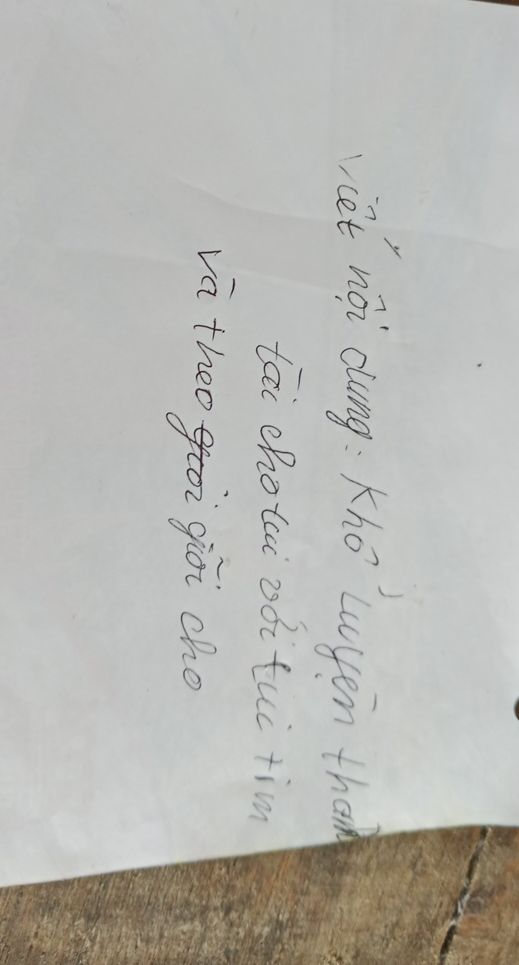 Viết nội dung: Khổ luyện thành
tài cho tui với tui tim
và theo giỏi cho